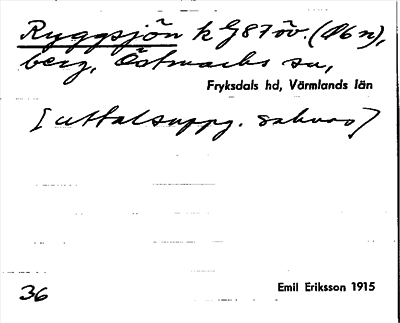 Ryggsjön k G87öv. (Ø6n),
berg, Östmarks sn,
Fryksdals hd, Värmlands län
[uttalsuppg. saknas]
Emil Eriksson 1915
36